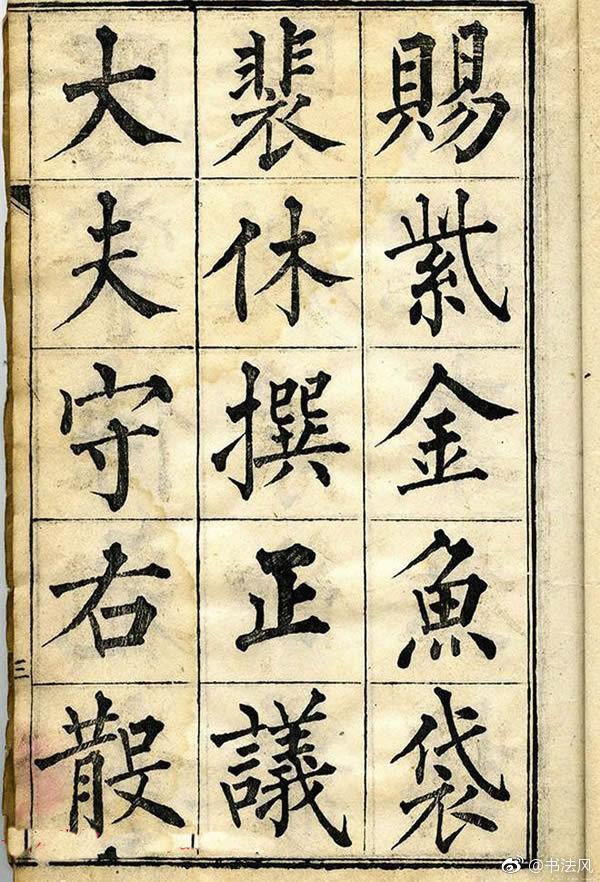 賜紫金魚袋
裴休撰正議
大夫守右散
三
@书法风